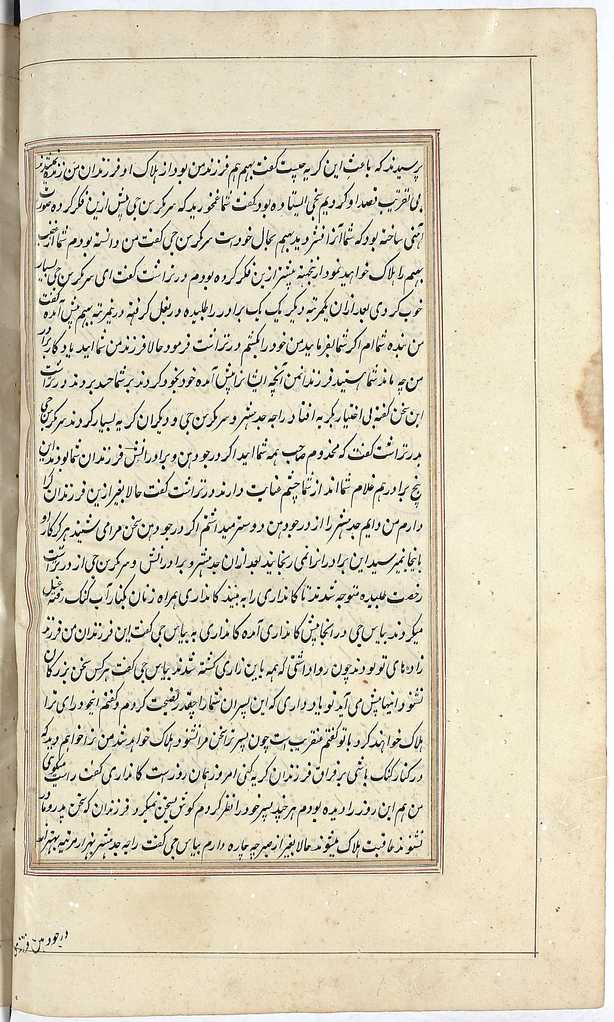 پرسیدند که باعث این گریه چیست گفت بهیم هم فرزند من بود از هلاک او فرزندان من زنده
بی تقریب قصد او کردیم نجی ایستاده بود گفت شما غم نخورید که سرکرسن جی پیش ازین فکر کرده صورت
آهنی ساخته بود که شما آنرا فشردید بهیم بحال خودست سرکرسن جی گفت من دانسته بودم شما از غضب
بهیم را هلاک خواهید نمود از نجهته پیشتر ازین فکر کرده بودم درتراشت گفت ای سرکرسن جی بسیار
خوب کردی بعد ازان یکمرتبه دیگر یک یک برادر را طلبیده در بغل گرفته درینمرتبه بهیم پیش آمده گفت
من بنده شما ام اگر شما بفرمایید من خود را بکشم درتراشت فرمود حالا فرزند من شمایید یادگار برادر
من چه ماند شما هستید فرزندانمن آنچه ایشانرا پیش آمده خود بخود کردند بر شما حسد بردند درتراشت
این سخن گفته بی اختیار بگریه افتاد راجه جدهشتر و سرکرسن جی و دیگران گریه بسیار کردند سرکرسن جی
بدرتراشت گفت که مخدوم صاحب همه شمایید اگر درجودهن و برادرانش فرزندان شما بودند این
پنج برادر هم غلام شما اند از شما چشم عنایت دارند درتراشت گفت حالا بغیر ازین فرزندان کرا
دارم من دایم جدهشتر را از درجودهن دوستر میداشتم اگر درجودهن سخن مرا می شنید هرگز کار او
باینجا نمیرسید این برادرانرا نمی رنجانید بعد ازان جدهشتر و برادرانش و سرکرسن جی از درتراشت
رخصت طلبیده متوجه شدند تا کانداری را به بینند کانداری همراه زنان بکنار آب گنگ رفته غسل
میکردند بیاس جی در انجا پیش کانداری آمده کانداری به بیاس جی گفت این فرزندان من فرزند
زادهای تو بودند چون روا داشتی که همه باین زاری کشته شدند بیاس جی گفت هر کس سخن بزرگان
نشنود اینها پیش می آید تو یاد داری که این پسران شما را چقدر نصیحت کردم و گفتم اینجودرای ترا
هلاک خواهند کرد با تو گفتم عنقریبست چون پسر تو سخن مرا نشنود هلاک خواهد شد من ترا خواهم دید که
در کنار گنگ باشی بر فراق فرزندان گریه کنی امروز همان روزست کانداری گفت راست میگوی
من هم این روز را دیده بودم هر چند پسر خود را نظر کردم گوش بسخن نمیکرد فرزندان که سخن پدر و مادر
نشنوند عاقبت هلاک میشوند حالا بغیر از صبر چه چاره دارم بیاس جی گفت راجه جدهشتر هزار مرتبه بهتر از
درجودهن فرزند